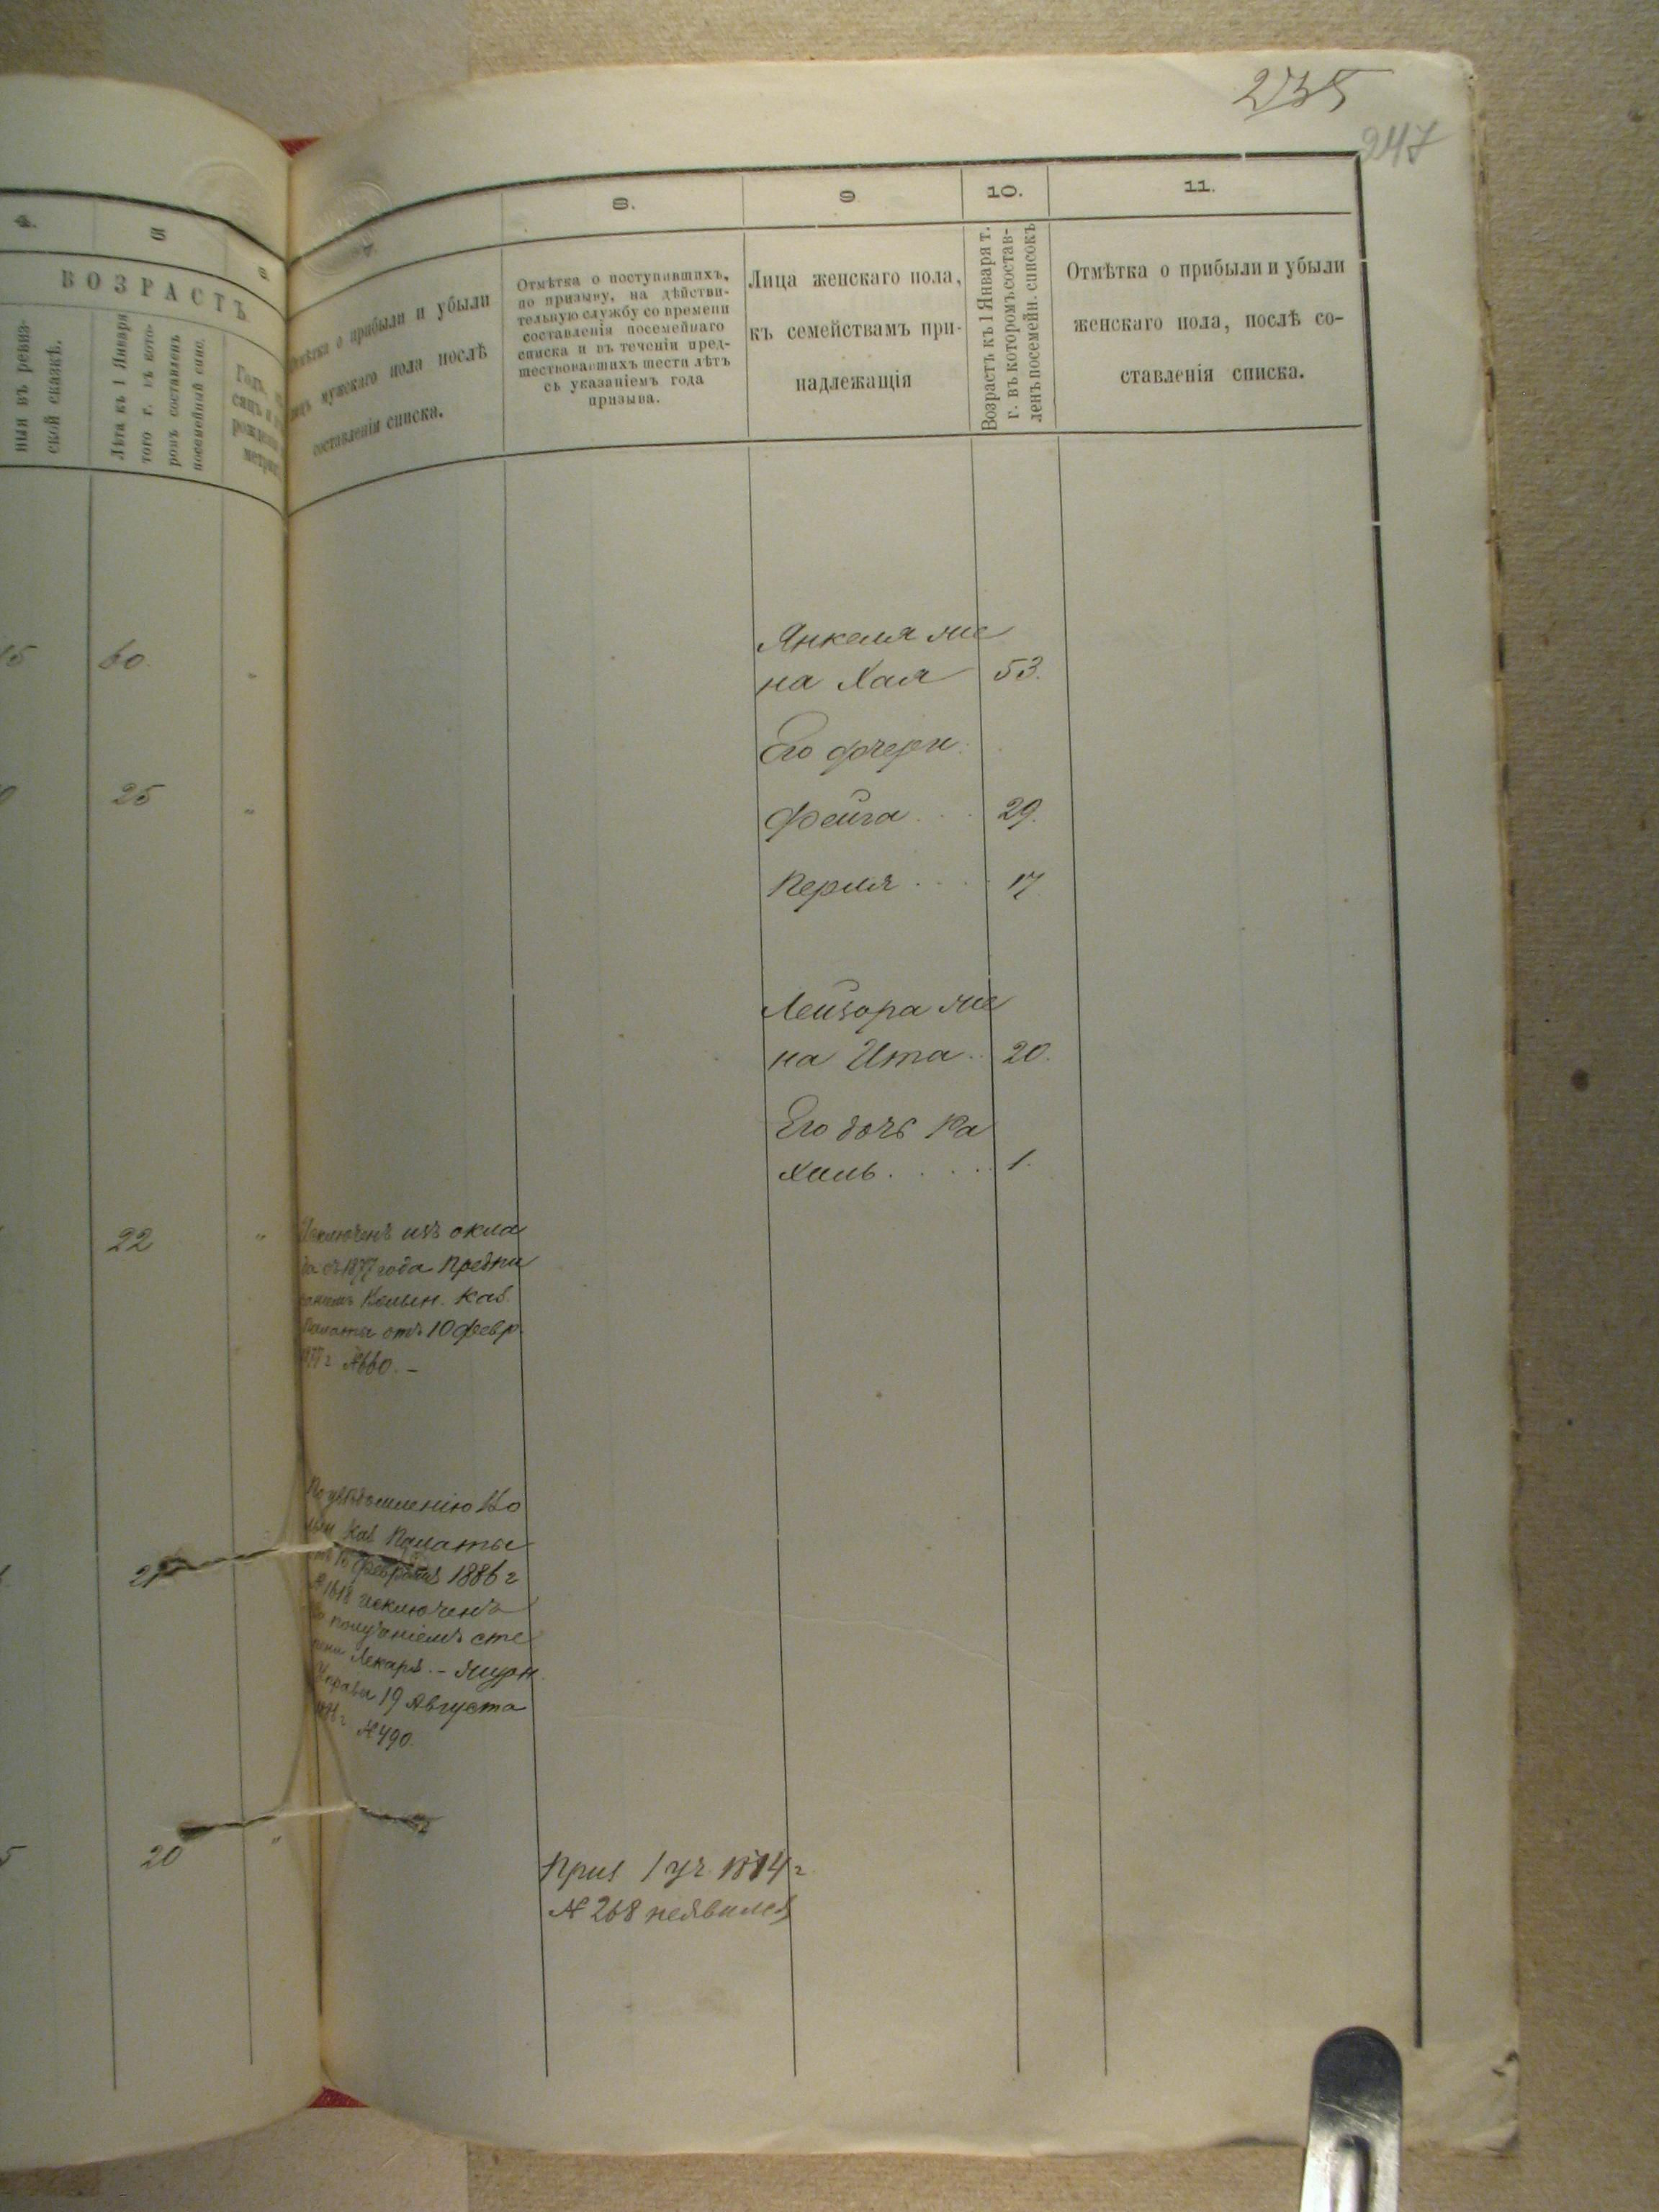 235
247
4.
5
6
7.
8.
9
10.
11.
ВОЗРАСТЪ
ныя въ ревиз-
ской сказкѣ.
Лѣта къ 1 Января
того г. въ кото-
ромъ составленъ
посемейный спис.
Отмѣтка о прибыли и убыли
лицъ мужскаго пола послѣ
составленія списка.
Отмѣтка о поступившихъ,
по призыву, на дѣйстви-
тельную службу со времени
составленія посемейнаго
списка и въ теченіи пред-
шествовавшихъ шести лѣтъ
съ указаніемъ года
призыва.
Лица женскаго пола,
къ семействамъ при-
надлежащія
Возрастъ къ 1 Января т.
г. въ которомъ состав-
ленъ посемейн. списокъ
Отмѣтка о прибыли и убыли
женскаго пола, послѣ со-
ставленія списка.
15 60. "
Янкеля же
на Хая 53.
Его дочери:
25 "
Фейга . . . 29.
Перля . . . . 17
Лейзора же
на Ита . . 20.
Его дочь Ра
хиль . . . . . 1.
22 "
Исключенъ изъ окла
да съ 1877 года Предпи
саніемъ Ковен. Каз.
Палаты отъ 10 февр.
№ 660. –
21
По увѣдомленію Ко
вен Каз Палаты
февраля 1886 г
№ 1618 исключенъ
полученіемъ сте
пени Лекаря. – Журн.
Управы 19 Августа
№ 490.
5 20 "
Приз 1 уч. 1874 г.
№ 268 неявился